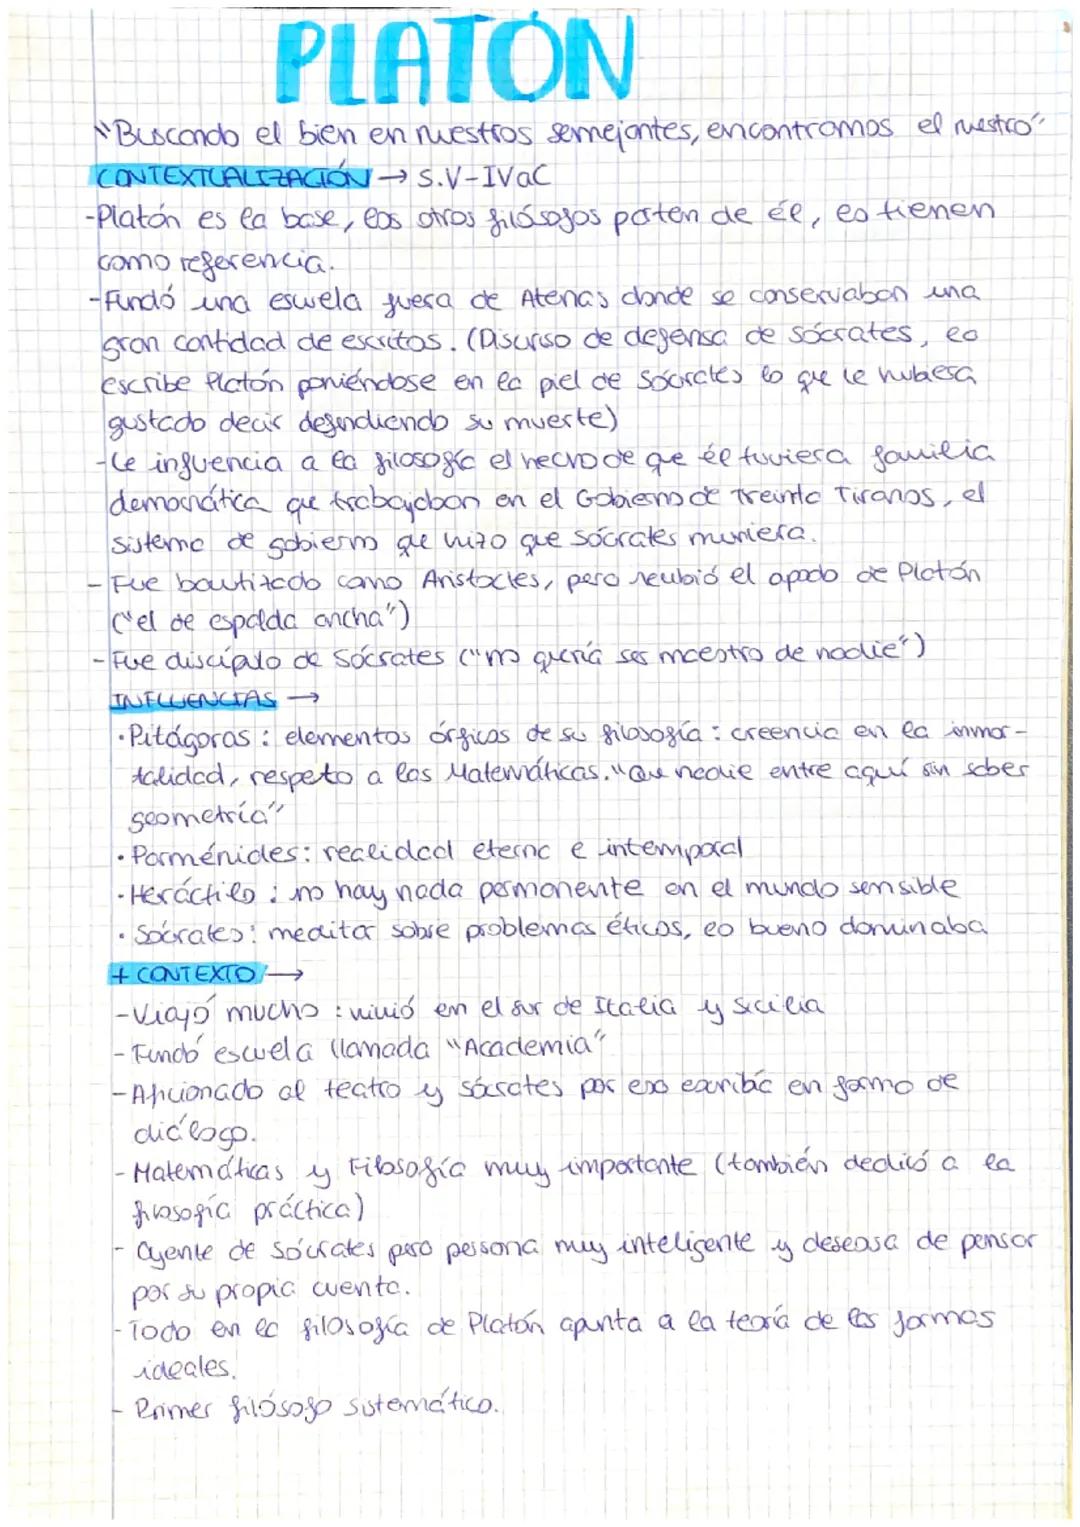 PLATÓN
"Buscando el bien en nuestros semejantes, encontramos el nuestro"
CONTEXTUALIZACIÓN → S.V-IVaC
-Platón es la base, los otros filósofos parten de él, lo tienen
como referencia.
-Fundó una escuela fuera de Atenas donde se conservaban una
gran cantidad de escritos. (Discurso de defensa de Sócrates, lo
escribe Platón poniéndose en la piel de Sócrates lo que le hubiera
gustado decir defendiendo su muerte)
-Le influencia a la filosofía el hecho de que él tuviera familia
democrática que trabajaban en el Gobierno de Treinta Tiranos, el
sistema de gobierno que hizo que Sócrates muriera.
-Fue bautizado como Aristocles, pero recibió el apodo de Platón
("el de espalda ancha")
-Fue discípulo de Sócrates ("no quería ser maestro de nadie")
INFLUENCIAS →
·Pitágoras: elementos órficos de su filosofía: creencia en la inmor-
talidad, respeto a las Matemáticas. "Que nadie entre aquí sin saber
geometría"
·Parménides: realidad eterna e intemporal
·Heráctilo: no hay nada permanente en el mundo sensible
·Sócrates: meditar sobre problemas éticos, lo bueno dominaba
+ CONTEXTO →
-Viajó mucho: vivió en el sur de Italia y Sicilia
-Fundó escuela llamada "Academia"
-Aficionado al teatro y Sócrates por eso escribía en forma de
diálogo.
-Matemáticas y Filosofía muy importante (también dedicó a la
filosofía práctica)
- Oyente de Sócrates pero persona muy inteligente y deseosa de pensar
por su propia cuenta.
-Todo en la filosofía de Platón apunta a la teoría de las formas
ideales.
- Primer filósofo sistemático.